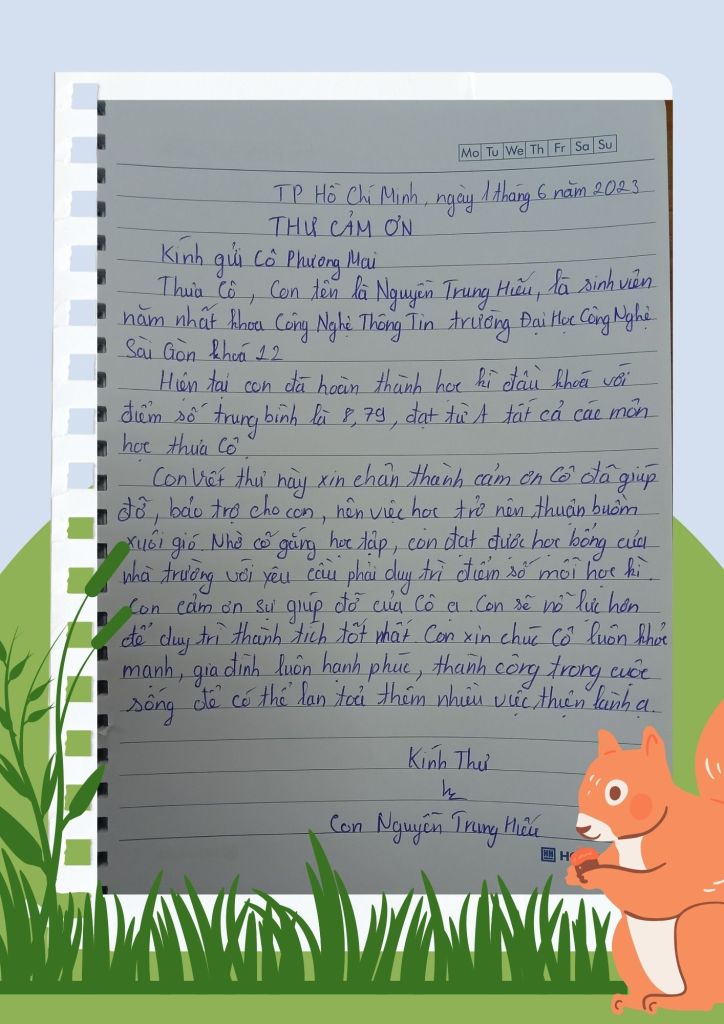 Mo Tu We Th Fr Sa Su
TP Hồ Chí Minh, ngày 1 tháng 6 năm 2023
THƯ CẢM ƠN
Kính gửi Cô Phương Mai
Thưa Cô, Con tên là Nguyễn Trung Hiếu, là sinh viên
năm nhất khoa Công Nghệ Thông Tin trường Đại Học Công Nghệ
Sài Gòn khoá 22
Hiện tại con đã hoàn thành học kì đầu khoá với
điểm số trung bình là 8,79, đạt từ A tất cả các môn
học thưa Cô.
Con viết thư này xin chân thành cảm ơn Cô đã giúp
đỡ, bảo trợ cho con, nên việc học trở nên thuận buồm
xuôi gió. Nhờ cố gắng học tập, con đạt được học bổng của
nhà trường với yêu cầu phải duy trì điểm số mỗi học kì.
Con cảm ơn sự giúp đỡ của Cô ạ. Con sẽ nỗ lực hơn
để duy trì thành tích tốt nhất. Con xin chúc Cô luôn khỏe
mạnh, gia đình luôn hạnh phúc, thành công trong cuộc
sống để có thể lan toả thêm nhiều việc thiện lành ạ.
Kính Thư
Con Nguyễn Trung Hiếu